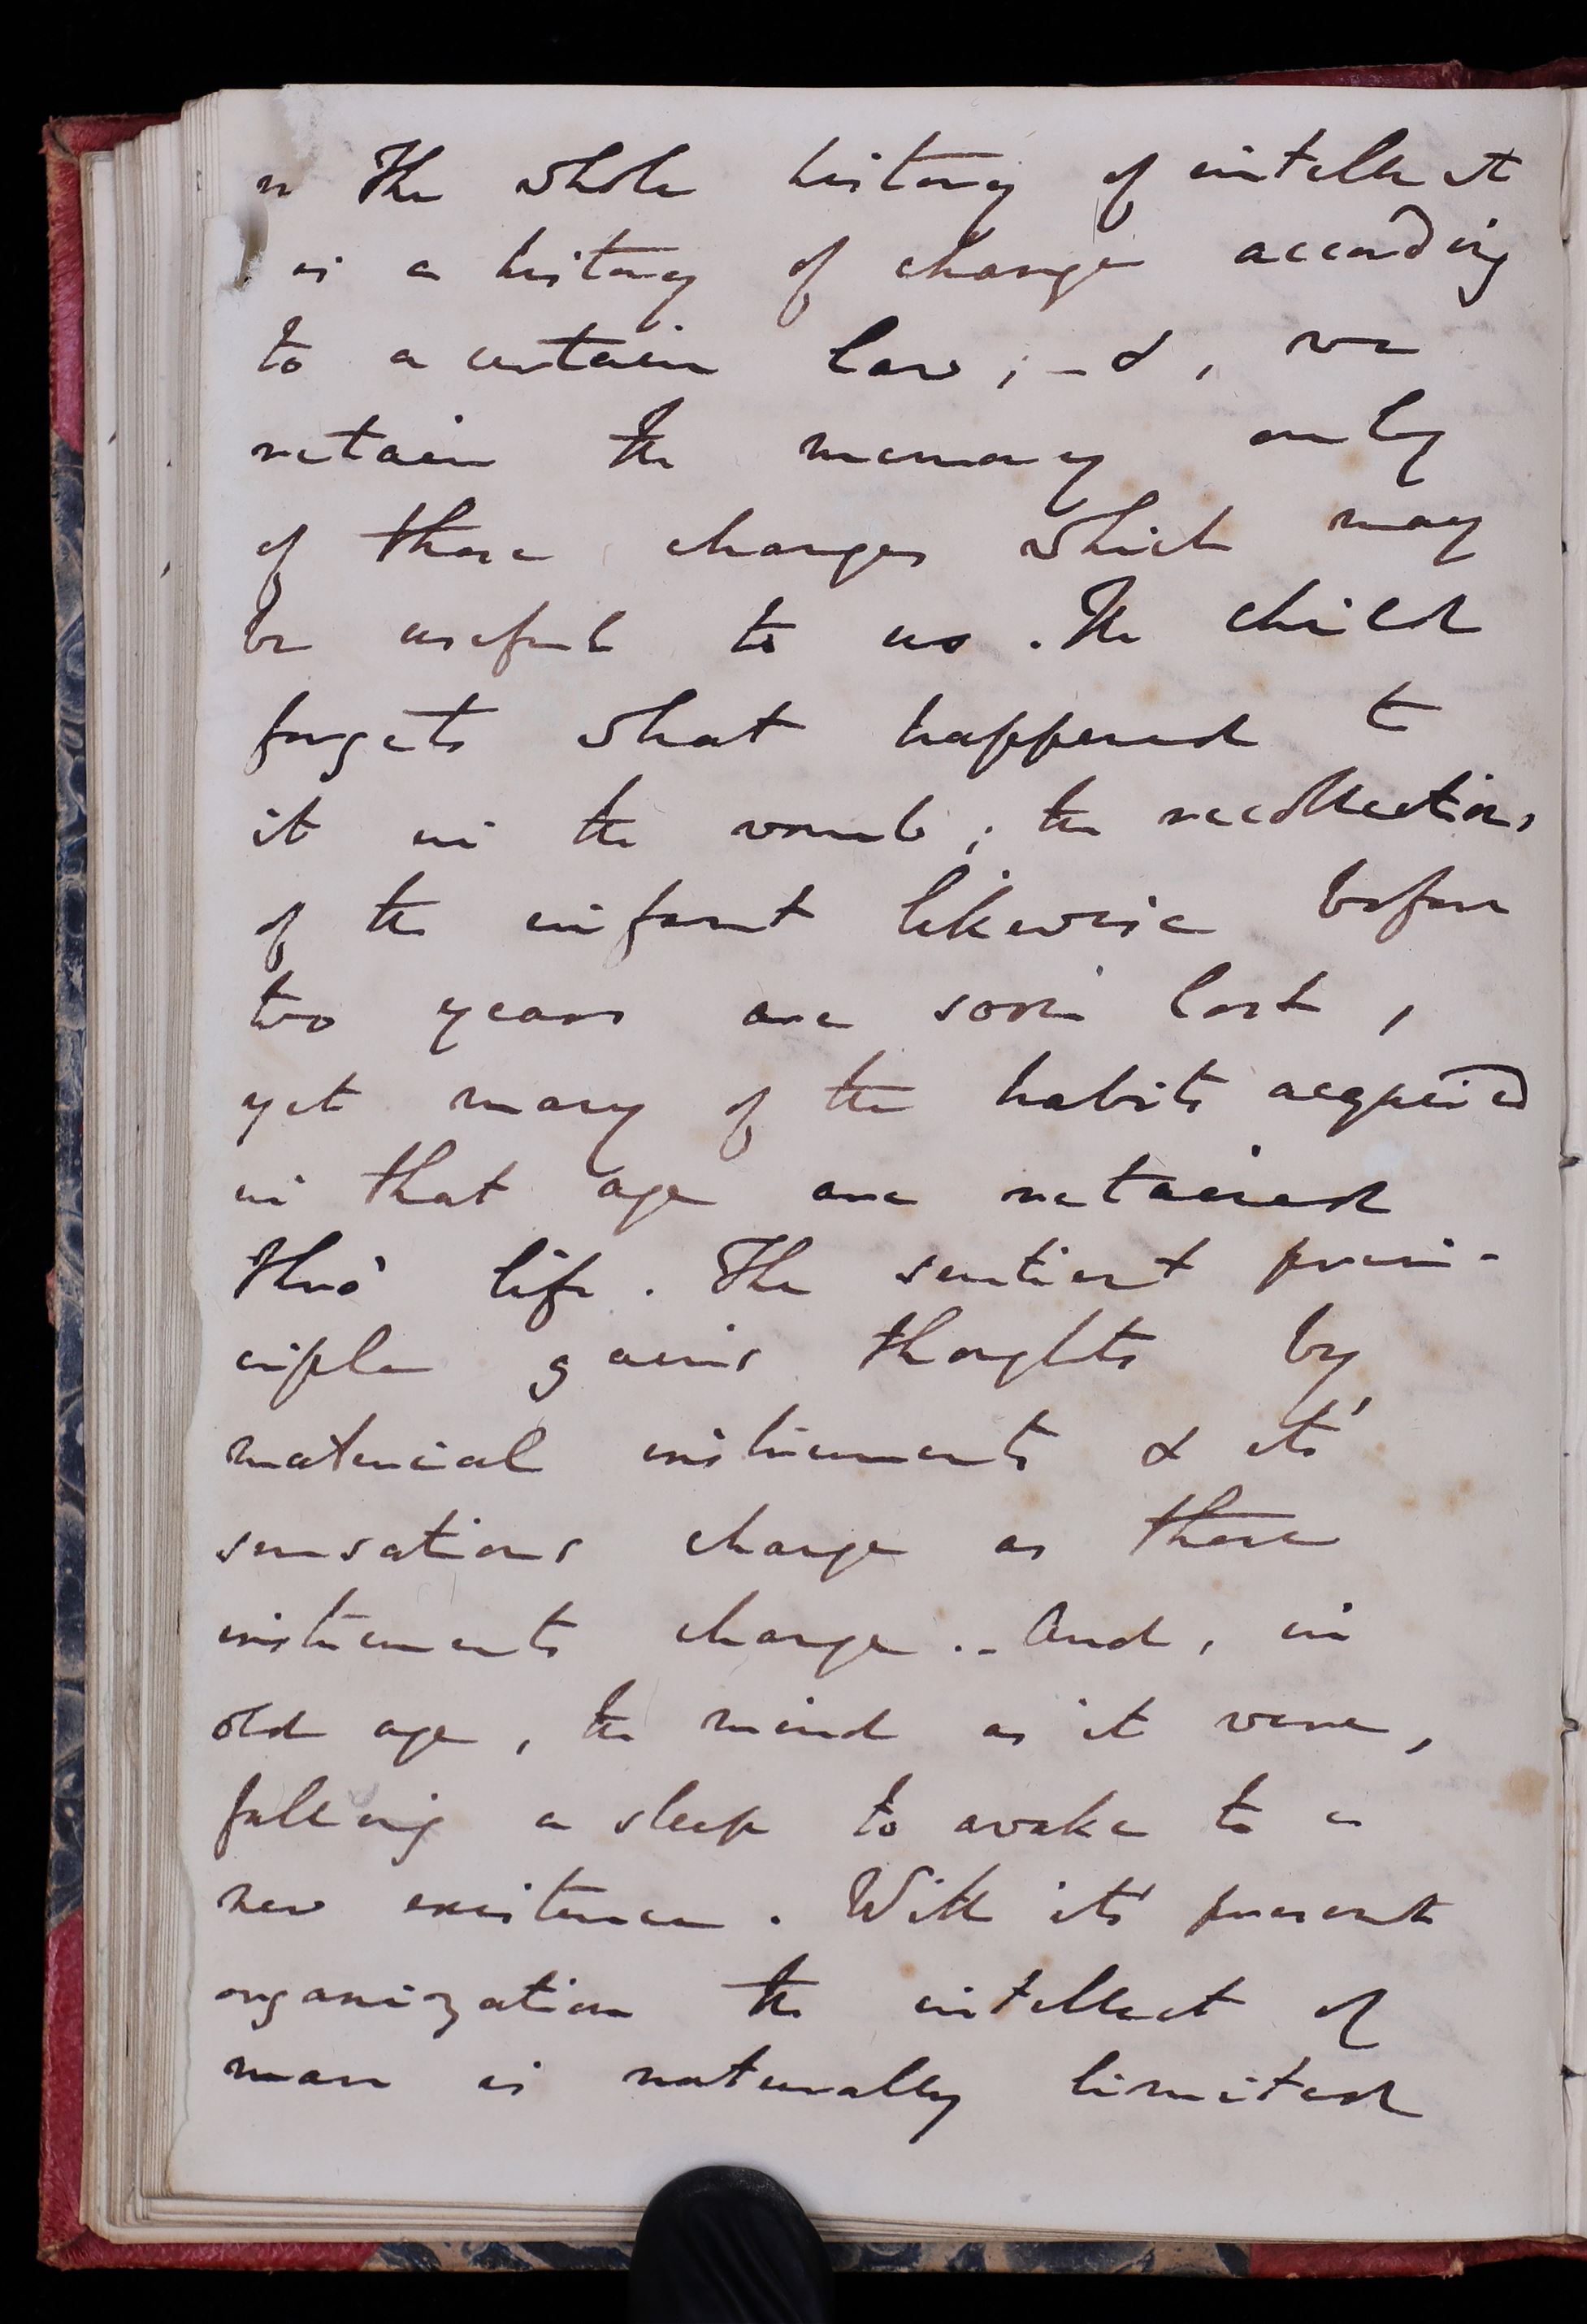 " The whole history of intellect
is a history of change according
to a certain law; – & , we
retain the memory only
of those changes which may
be useful to us. The child
forgets what happened to
it in the womb; the recollections
of the infant likewise before
two years are soon lost,
yet many of the habits acquired
in that age are retained
thro' life. The sentient prin-
ciple gains thoughts by
material instruments & its'
sensations change as those
instruments change. – And, in
old age, the mind as it were,
falling asleep to awake to a
new existence. With its' present
organization the intellect of
man is naturally limited